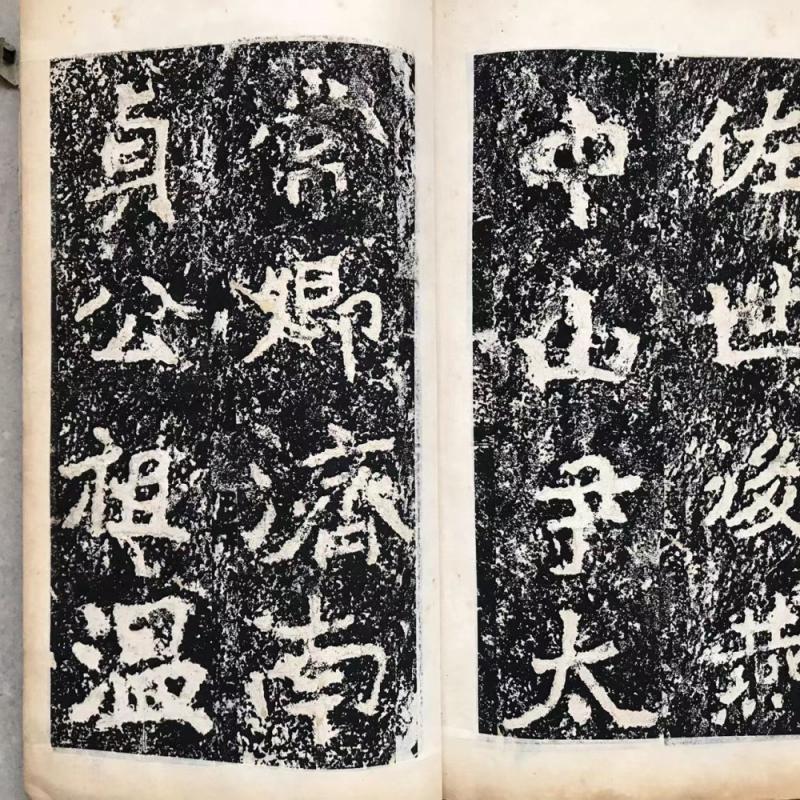 佐世後燕
中山尹太
常卿濟南
貞公祖温